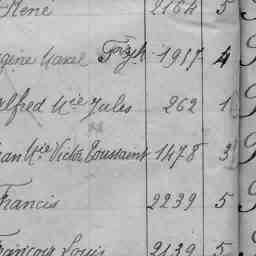 René 2164 5
gine Marel 1957 4
Alfred Mie Jules 262 1
ean Mie Victor Toussaint 1478 3
Francis 2239 5
François Louis 2139 5